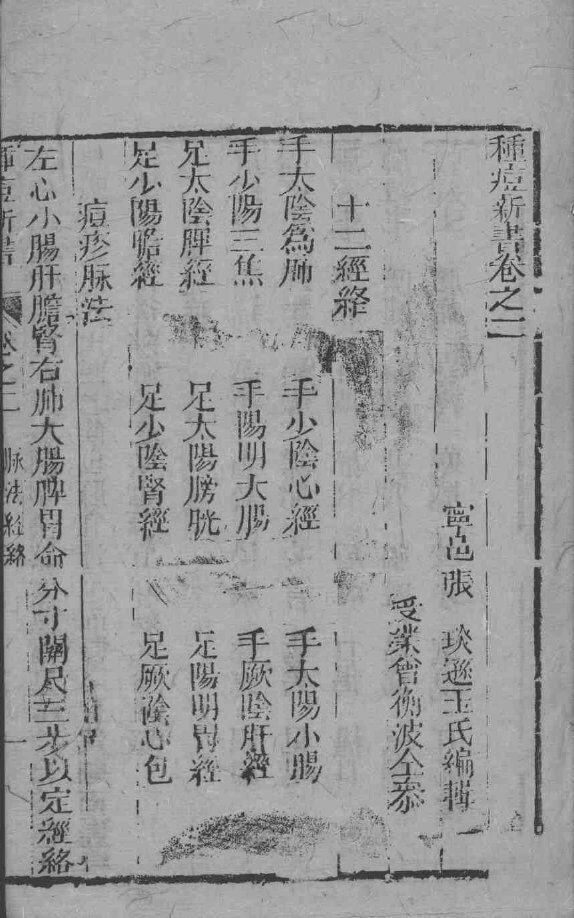 種痘新書卷之二
寧邑張 琰遜玉氏編輯
受業曾衡波仝叅
十二經絡
手太陰爲肺 手少陰心經 手太陽小腸
手少陽三焦 手陽明大腸 手厥陰肝經
足太陰脾經 足太陽膀胱 足陽明胃經
足少陽膽經 足少陰腎經 足厥陰心包
痘疹脉法
左心小腸肝膽腎右肺大腸脾胃命分寸關尺三步以定經絡
種痘新書 卷之二 脉法經絡 一